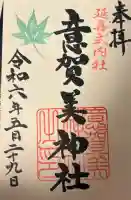 奉拝
延喜式内社
意賀美神社
令和六年五月二十九日